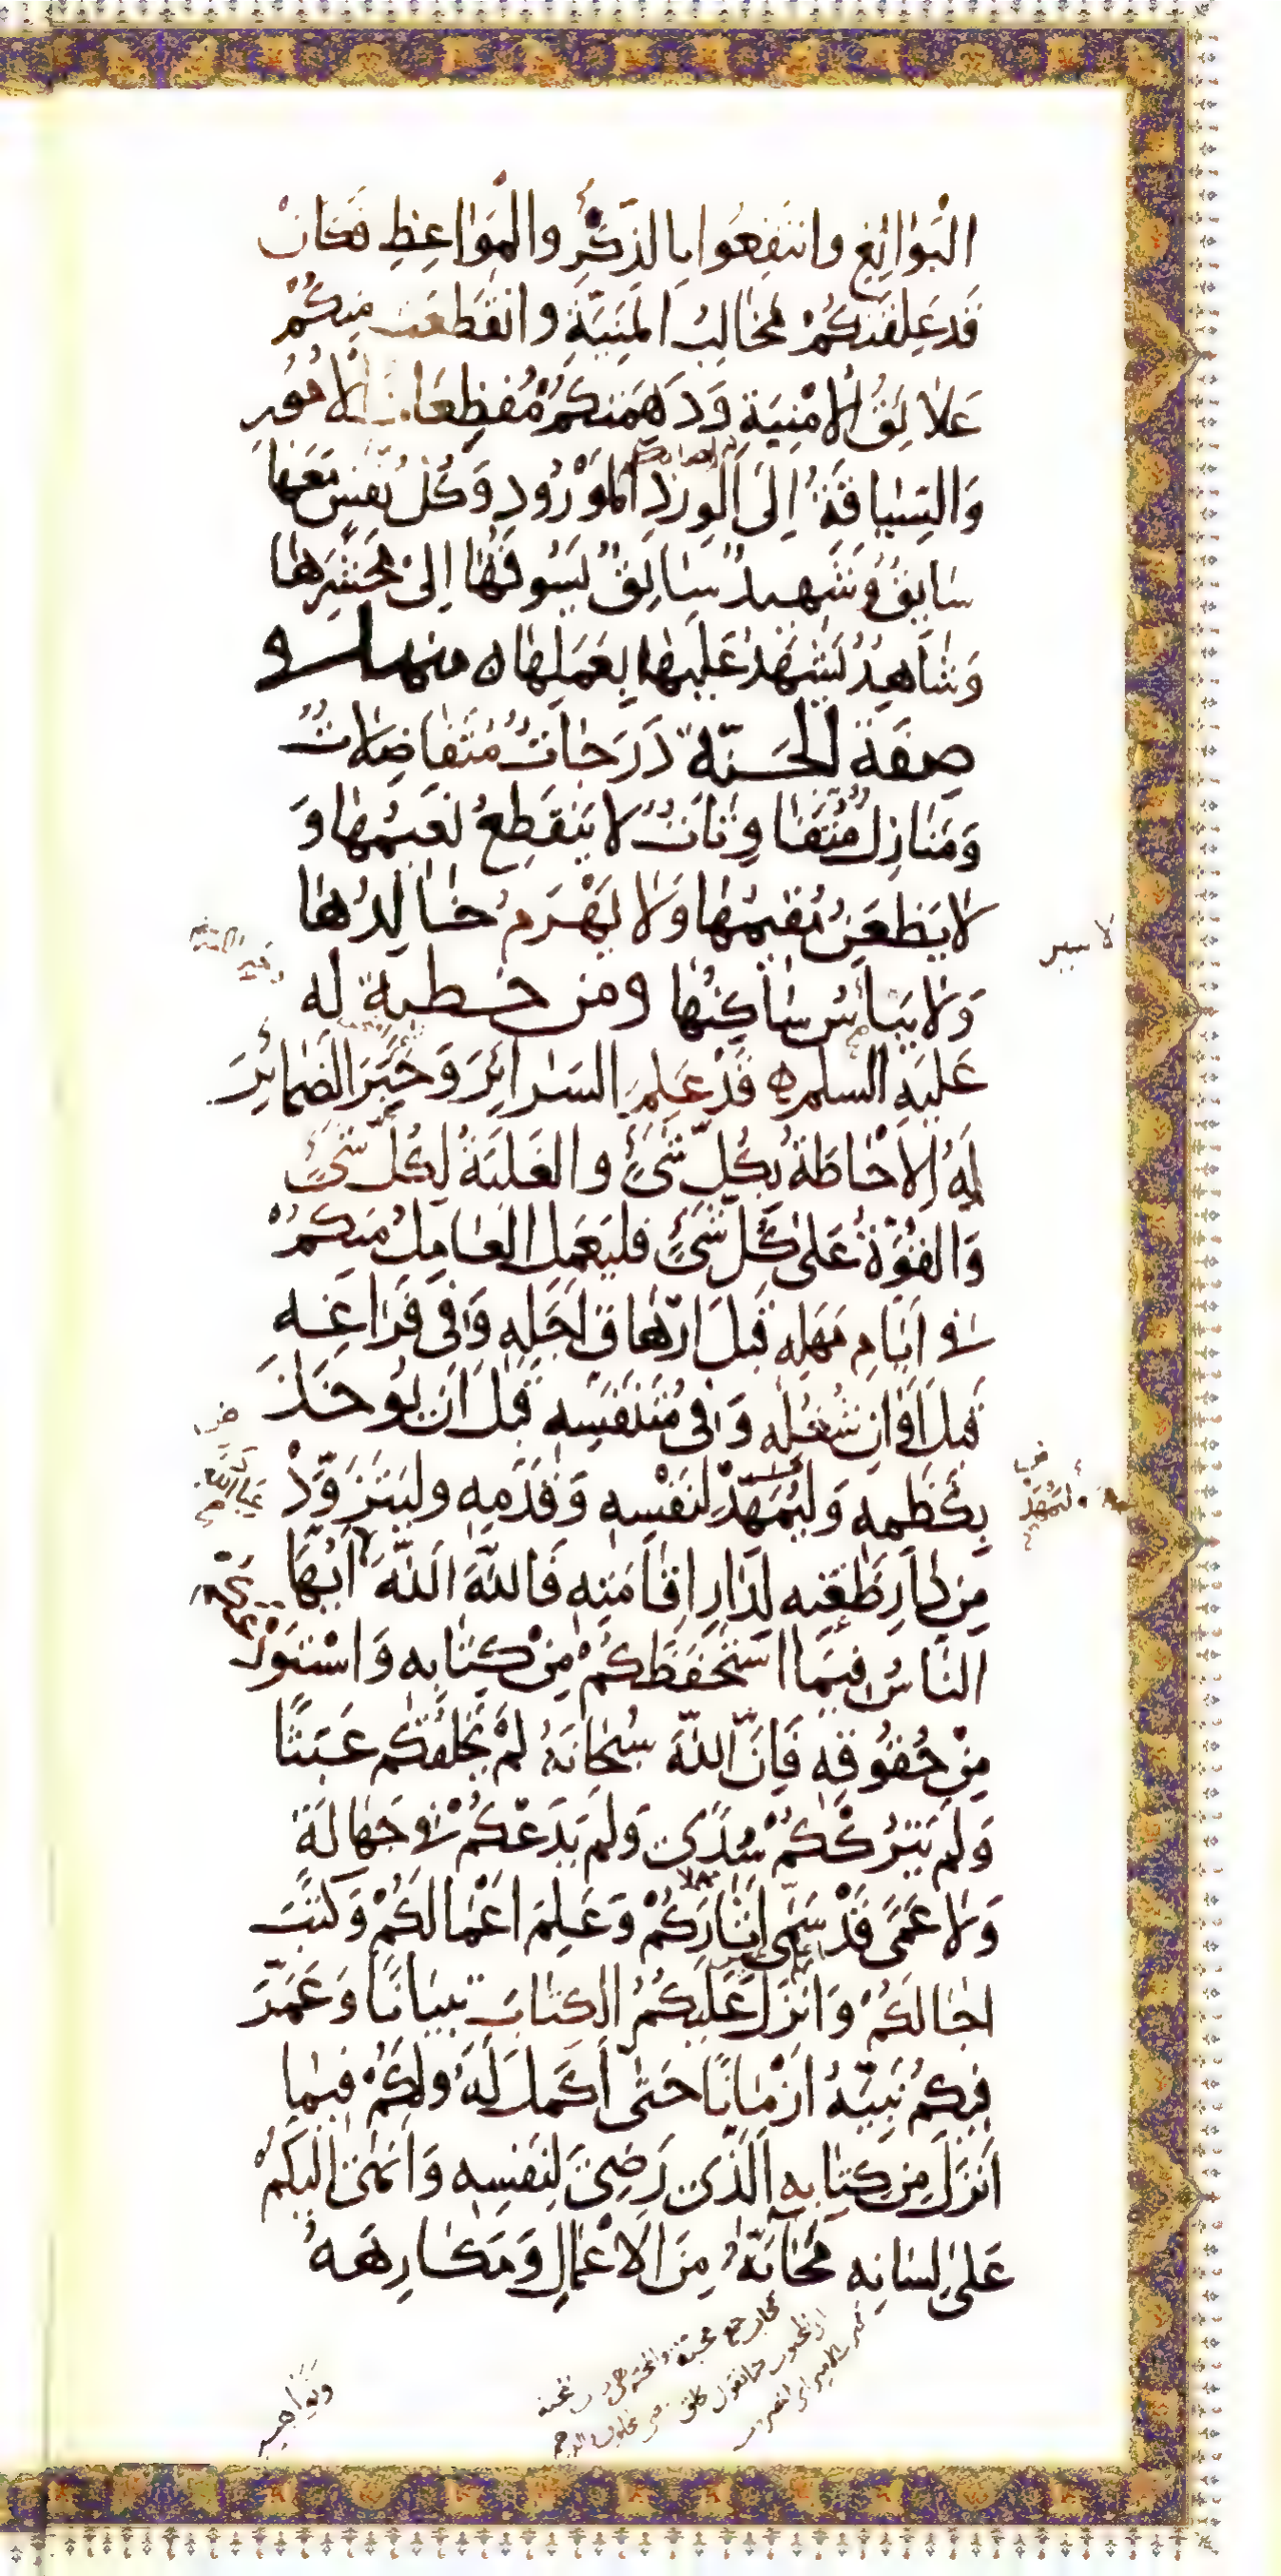 الْبَوَالِغِ وَانْتَفِعُوا بِالذِّكْرِ وَالْمَوَاعِظِ فَكَانْ
قَدْ عَلِقَتْكُمْ مَخَالِبُ الْمَنِيَّةِ وَانْقَطَعَتْ مِنْكُمْ
عَلَائِقُ الْأُمْنِيَةِ وَدَهِمَتْكُمْ مُفْظِعَاتُ الْأُمُورِ
وَالسِّيَاقَةُ إِلَى الْوِرْدِ الْمَوْرُودِ وَكُلُّ نَفْسٍ مَعَهَا
سَائِقٌ وَشَهِيدٌ سَائِقٌ يَسُوقُهَا إِلَى مَحْشَرِهَا
وَشَاهِدٌ يَشْهَدُ عَلَيْهَا بِعَمَلِهَا ه منها و
صِفَةِ الْجَنَّةِ دَرَجَاتٌ مُتَفَاضِلَاتٌ
وَمَنَازِلُ مُتَفَاوِتَاتٌ لَا يَنْقَطِعُ نَعِيمُهَا وَ
لَا يَظْعَنُ مُقِيمُهَا وَلَا يَهْرَمُ خَالِدُهَا
وَلَا يَبْأَسُ سَاكِنُهَا ومن خطبة له
عَلَيْهِ السلم ه قَدْ عَلِمَ السَّرَائِرَ وَخَبَرَ الضَّمَائِرَ
لَهُ الْإِحَاطَةُ بِكُلِّ شَيْءٍ وَالْغَلَبَةُ لِكُلِّ شَيْءٍ
وَالْقُوَّةُ عَلَى كُلِّ شَيْءٍ فَلْيَعْمَلِ الْعَامِلُ مِنْكُمْ
فِي أَيَّامِ مَهَلِهِ قَبْلَ إِرْهَاقِ أَجَلِهِ وَفِي فَرَاغِهِ
قَبْلَ أَوَانِ شُغُلِهِ وَفِي مُتَنَفَّسِهِ قَبْلَ أَنْ يُوخَذَ
بِكَظَمِهِ وَلْيُمَهِّدْ لِنَفْسِهِ وَقَدَمِهِ وَلْيَتَزَوَّدْ
مِنْ دَارِ ظَعْنِهِ لِدَارِ إِقَامَتِهِ فَاللَّهَ اللَّهَ أَيُّهَا
النَّاسُ فِيمَا اسْتَحْفَظَكُمْ مِنْ كِتَابِهِ وَاسْتَوْدَ
عَكُمْ
مِنْ حُقُوقِهِ فَإِنَّ اللَّهَ سُبْحَانَهُ لَمْ يَخْلُقْكُمْ عَبَثًا
وَلَمْ يَتْرُكْكُمْ سُدًى وَلَمْ يَدَعْكُمْ فِي جَهَالَةٍ
وَلَا عَمًى قَدْ سَمَّى آثَارَكُمْ وَعَلِمَ أَعْمَالَكُمْ وَكَتَبَ
آجَالَكُمْ وَأَنْزَلَ عَلَيْكُمُ الْكِتَابَ تِبْيَانًا وَعَمَّرَ
فِيكُمْ نَبِيَّهُ أَزْمَانًا حَتَّى أَكْمَلَ لَهُ وَلَكُمْ فِيمَا
أَنْزَلَ مِنْ كِتَابِهِ الَّذِي رَضِيَ لِنَفْسِهِ وَأَنْهَى إِلَيْكُمْ
عَلَى لِسَانِهِ مَحَابَّهُ مِنَ الْأَعْمَالِ وَمَكَارِهَهُ
وَنَوَاهِيَهُ